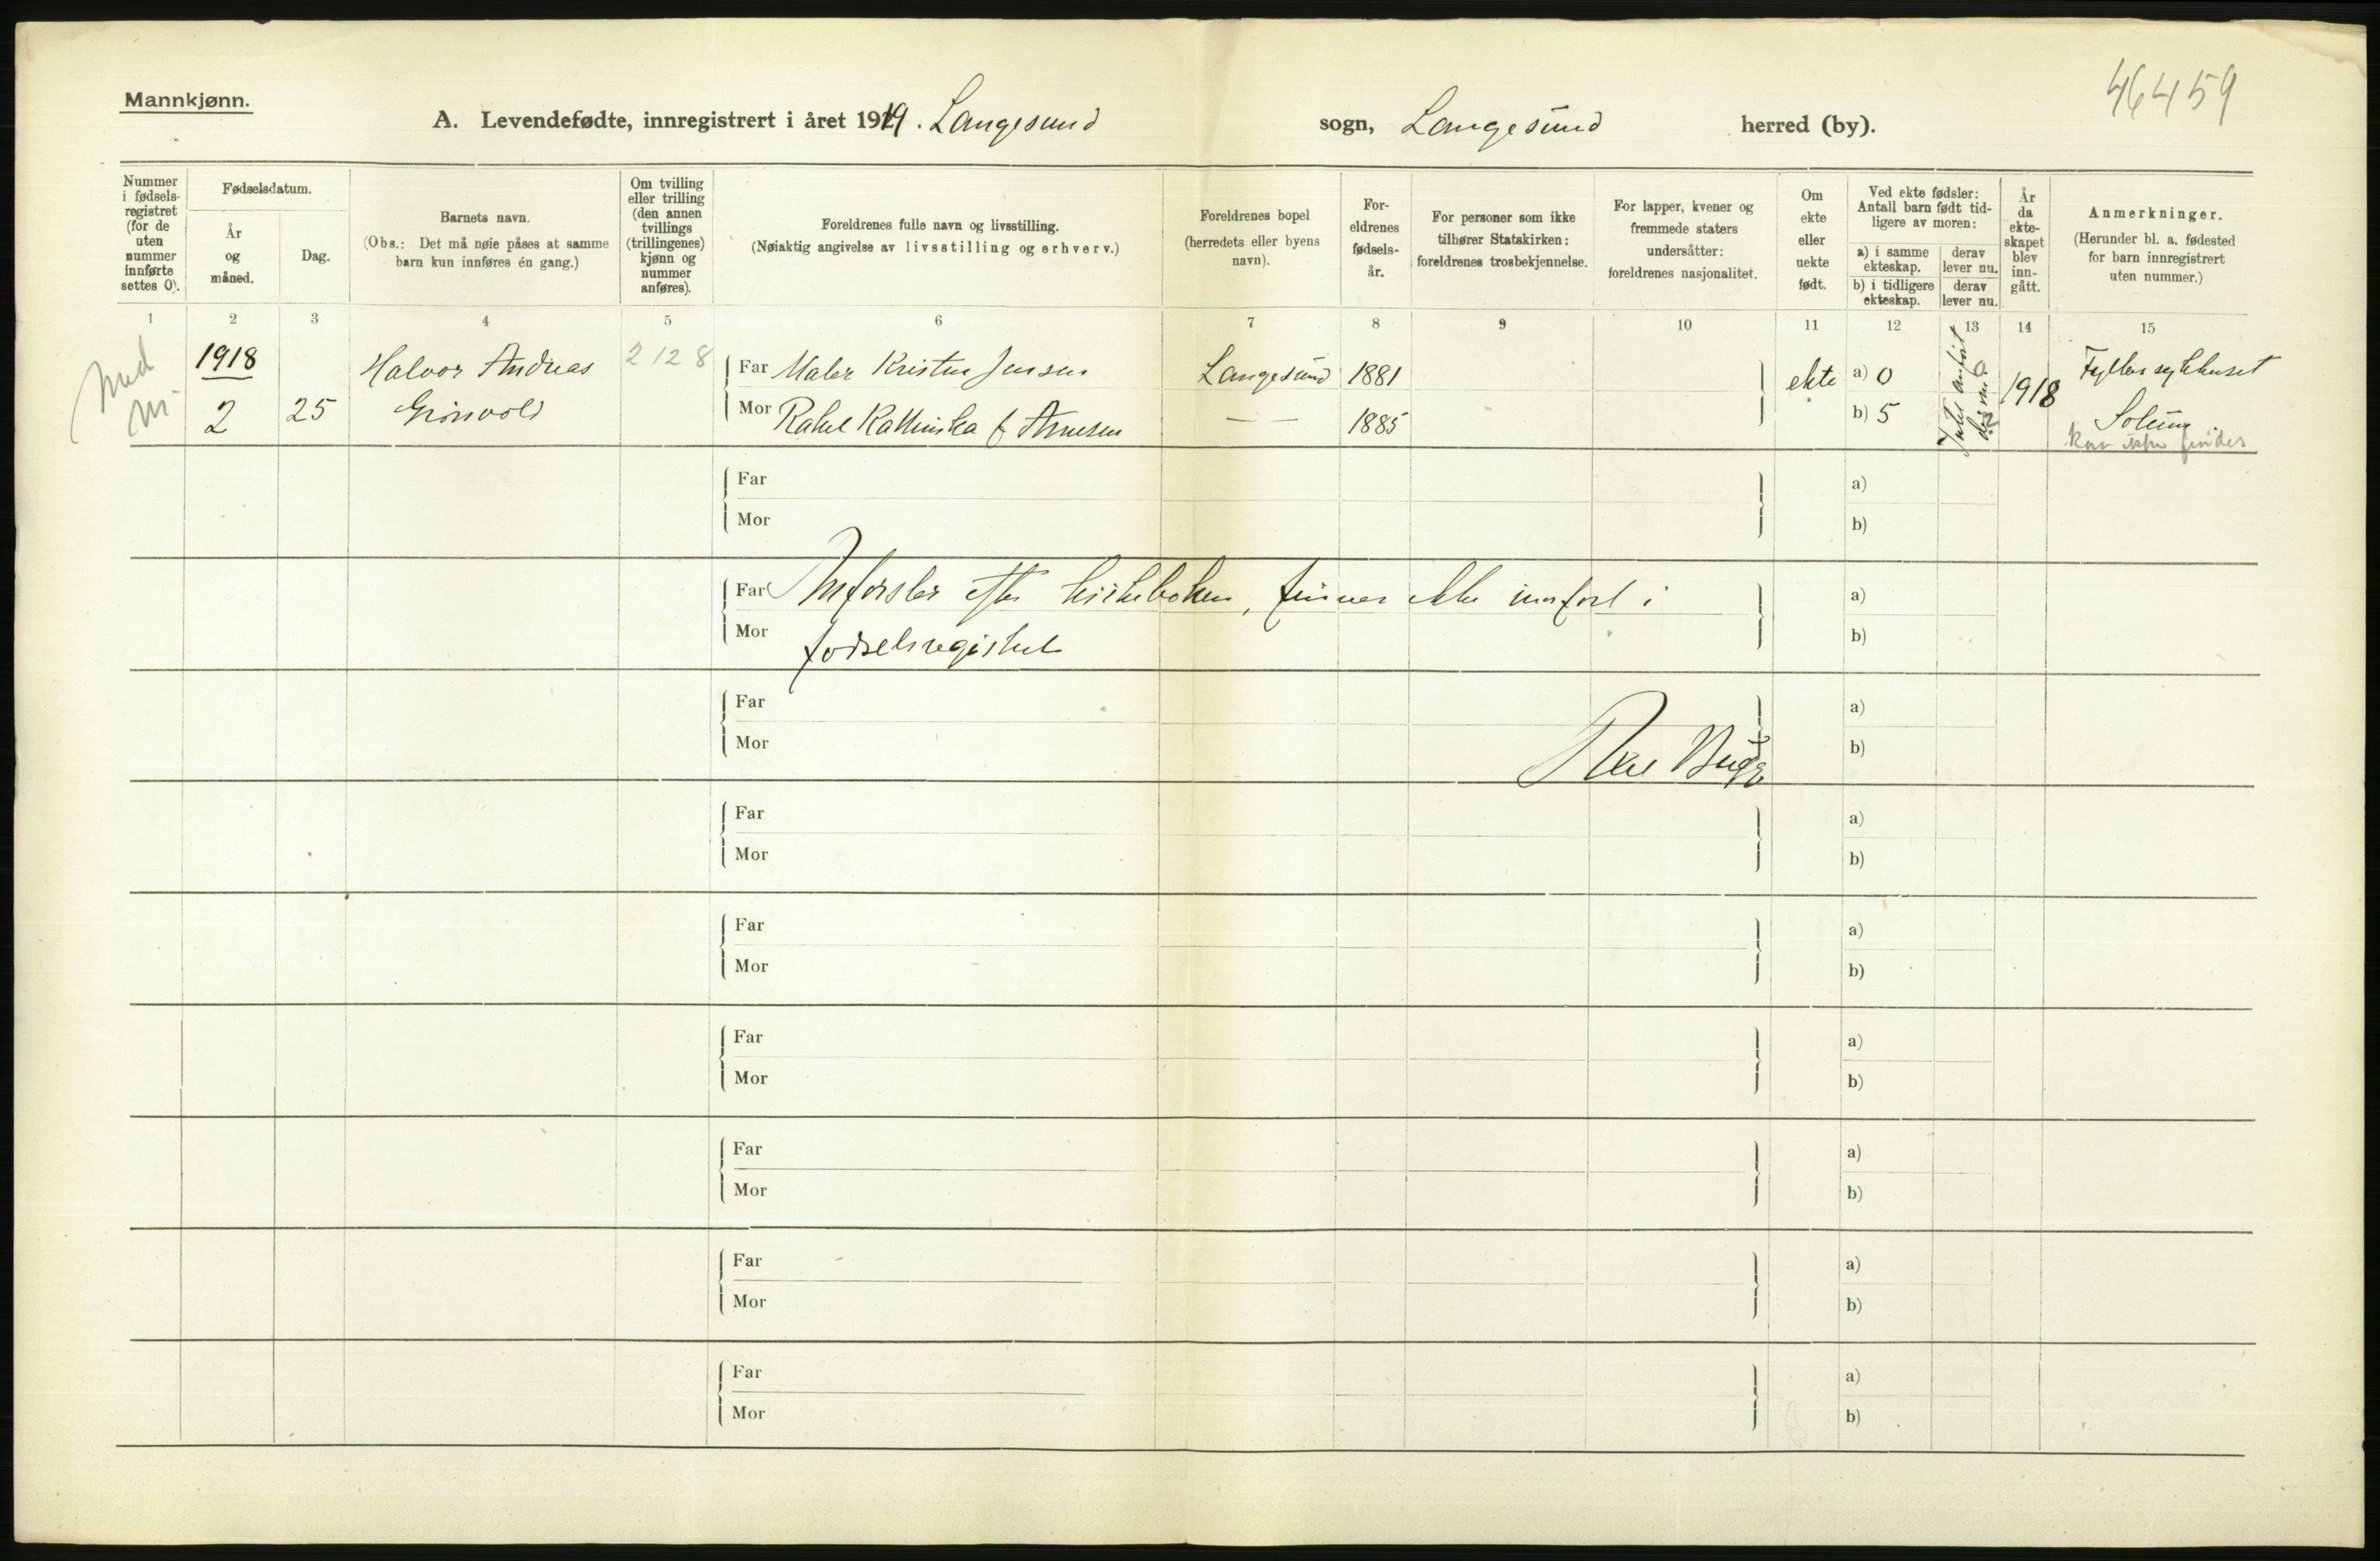 46459
Mannkjønn.
A. Levendefødte, innregistrert i året 1919. Langesund sogn, Langesund herred (by).
Nummer
i fødsels-
registret
(for de
uten
nummer
innførte
settes 0).
Fødselsdatum.
År
og
måned.
Dag.
Barnets navn.
(Obs.: Det må nøie påses at samme
barn kun innføres én gang.)
Om tvilling
eller trilling
(den annen
tvillings
(trillingenes)
kjønn og
nummer
anføres).
Foreldrenes fulle navn og livsstilling.
(Nøiaktig angivelse av livsstilling og erhverv.)
Foreldrenes bopel
(herredets eller byens
navn).
For-
eldrenes
fødsels-
år.
For personer som ikke
tilhører Statskirken:
foreldrenes trosbekjennelse.
For lapper, kvener og
fremmede staters
undersåtter:
foreldrenes nasjonalitet.
Om
ekte
eller
uekte
født.
Ved ekte fødsler:
Antall barn født tid-
ligere av moren:
a) i samme
ekteskap.
derav
lever nu.
b) i tidligere
ekteskap.
derav
lever nu.
År
da
ekte-
skapet
blev
inn-
gått.
Anmerkninger.
(Herunder bl. a. fødested
for barn innregistrert
uten nummer.)
1 2 3 4 5 6 7 8 9 10 11 12 13 14 15
1918 Halvor Andreas 2128 Far Maler Kristen Jensen Langesund 1881 ekte a) 0 1918 Fylkessykehuset
2 25 Grönvold Mor Rakel Kathinka f Arnesen — — 1885 b) 5 Solum
kan ikke findes
Far a)
Mor b)
Far Innførsler efter kirkeboken, finnes ikke innført i a)
Mor fødselsregistret b)
Far a)
Mor Bugge b)
Far a)
Mor b)
Far a)
Mor b)
Far a)
Mor b)
Far a)
Mor b)
Far a)
Mor b)
Far a)
Mor b)